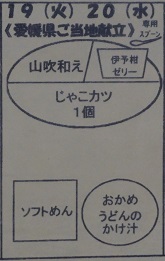 19(火) 20(水)
《愛媛県ご当地献立》
専用
スプーン
山吹和え
伊予柑
ゼリー
じゃこカツ
1個
ソフトめん
おかめ
うどんの
かけ汁